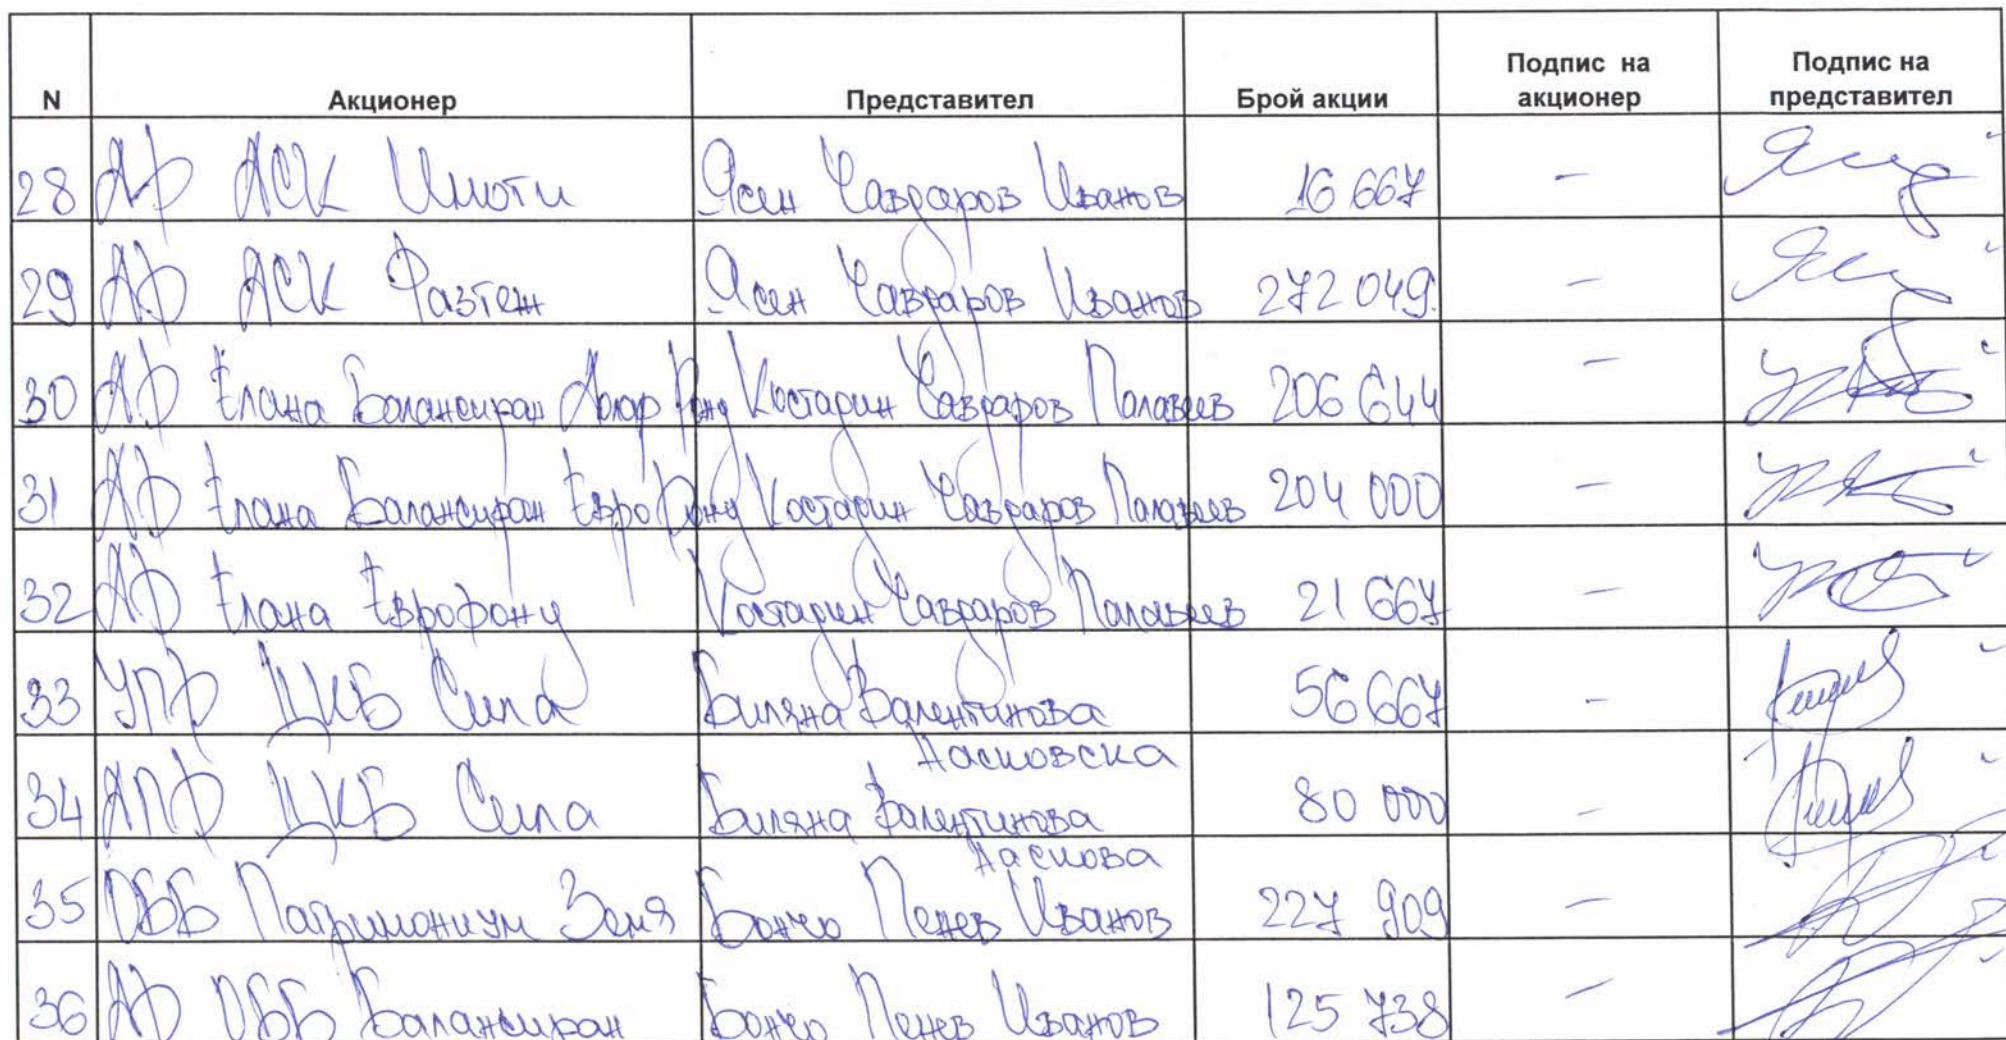 N Акционер Представител Брой акции Подпис на акционер Подпис на представител
28 ДФ ДСК Имоти Ясен Чавдаров Иванов 16 667 –
29 ДФ ДСК Растеж Ясен Чавдаров Иванов 272 049. –
30 ДФ Елана Балансиран Долар Фонд Костадин Чавдаров Палазов 206 644 –
31 ДФ Елана Балансиран Евро Фонд Костадин Чавдаров 204 000 –
32 ДФ Елана Еврофонд Костадин Чавдаров 21 667 –
33 УПФ ЦКБ Сила Биляна Валентинова 56 667 –
Дасковска
34 ДПФ ЦКБ Сила Биляна Валентинова 80 000 –
Даскова
35 ОББ Патримониум Земя Бончо Пенев Иванов 227 909 –
36 ДФ ОББ Балансиран Бончо Пенев Иванов 125 738 –